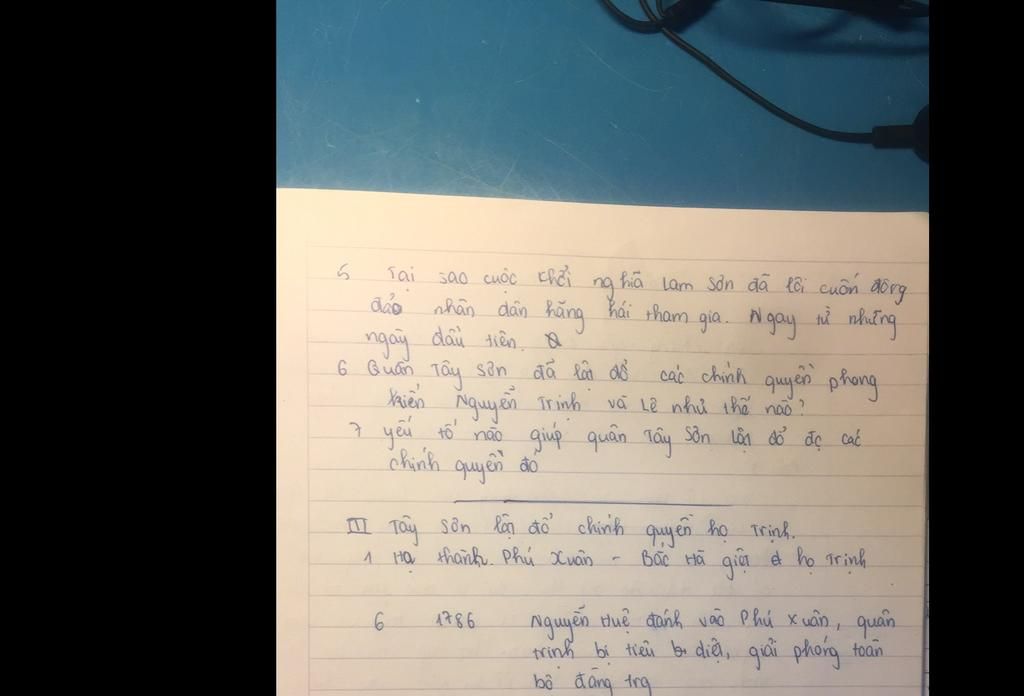 5 Tại sao cuộc khởi nghĩa Lam Sơn đã lôi cuốn đông
đảo nhân dân hăng hái tham gia. Ngay từ những
ngày đầu tiên.
6 Quân Tây Sơn đã lật đổ các chính quyền phong
kiến Nguyễn Trịnh và Lê như thế nào?
7 yếu tố nào giúp quân Tây Sơn lật đổ đc các
chính quyền đó
III Tây Sơn lật đổ chính quyền họ Trịnh.
1 Hạ thành. Phú Xuân - Bắc Hà giệt họ Trịnh
6 1786 Nguyễn Huệ đánh vào Phú Xuân, quân
trịnh bị tiêu diệt, giải phóng toàn
bộ đàng trg